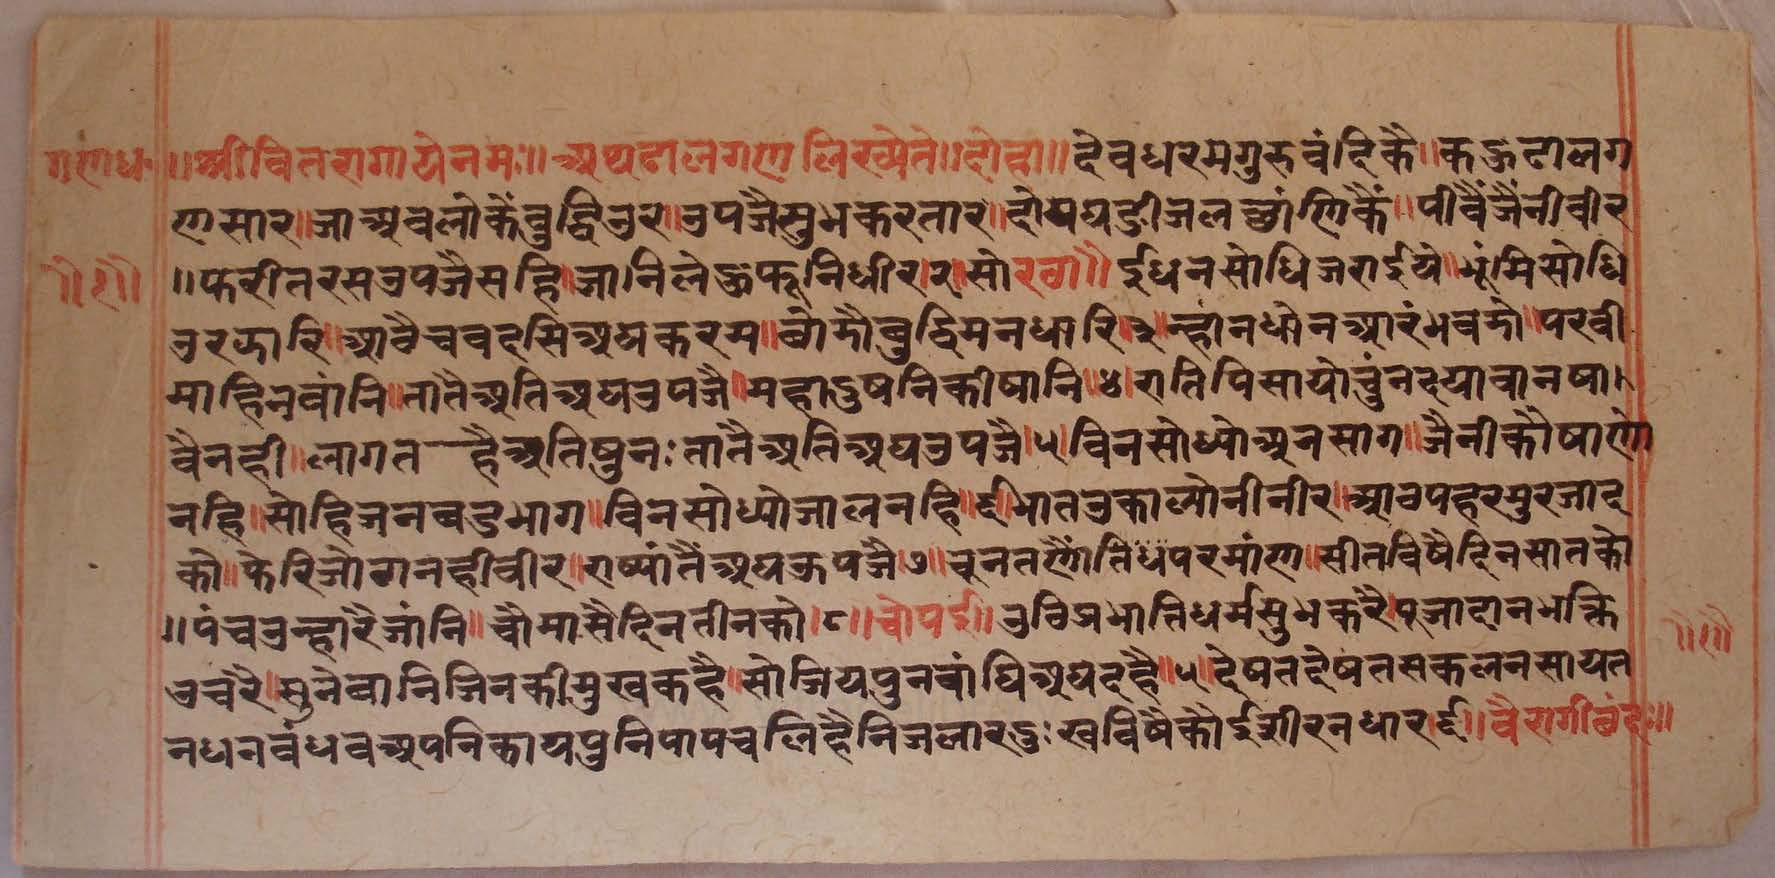 गणधः ॥ श्रीवितरागायेनमः॥ अथढालगण लिख्येते॥ दोहा॥ देवधरमगुरुवंदिकै॥ कऊढालग
णसार॥ जाअवलोकेंबुद्धिउर॥ उपजैसुभकरतार॥ दोयघडीजलछांणिकैं॥ पीवैंजैंनीवीर
॥ १॥ ॥ फेरीतरसउपजैसहि॥ जानिलेऊफूनिधीर।२। सोरठा॥ ईधनसोधिजराईये॥ भूंमिसोधि
उरझारि॥ आवैचवदसिअघकरम॥ वोमौबुद्धिमनधारि।३। न्हांनधोनआरंभवमो॥ परवी
माहिनठांनि॥ तातैअतिअघउपजै॥ महादुषनिकीषानि॥४। रातिपिसायोचुंनदयावानषा
वैनही॥ लागतहैअतिघुनः तातैअतिअघउपजै।५। विनसोध्योअनसाग॥ जैनीकौषाणो
नहि॥ सोहिजनबडभाग॥ विनसोध्योजालनहि॥६॥ भातउकाल्योनीनीर॥ आठपहरमुरजाद
कौ॥ फेरिजोगनहीवीर॥ राष्यांतैंअघऊपजै।७॥ चूनतणौंतिथपरमांण॥ सीतविषैदिनसातकौ
॥ पंचउन्हारैजांनि॥ चौमासैदिनतीनको।८॥ चोपई॥ उठिप्रभातिधर्मसुभकरै। पूजादानभक्ति
उचरै। सुनेवानिजिनकीमुखकहै॥ सोजियपुनबांधिअघदहै॥५। देषतदेषतसकलनसायत
नधनबंधवअपनिकायपुनिपापचलिहैनिजलारदुःखविषैकौईसीरनधार।ई॥ वैरागीछंदः॥